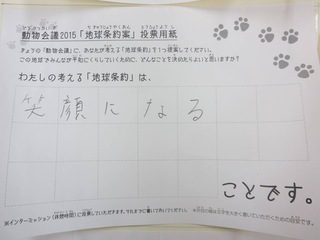 動物会議2015「地球条約案」投票用紙
きょうの「動物会議」に、あなたが考える「地球条約」を1つ提案してください。
この地球でみんなが平和にくらしていくために、どんなことを決めたらよいと思いますか?
わたしの考える「地球条約」は、
笑顔になる
ことです。
※インターミッション(休憩時間)に投票していただきます。それまでに書いておいてください。